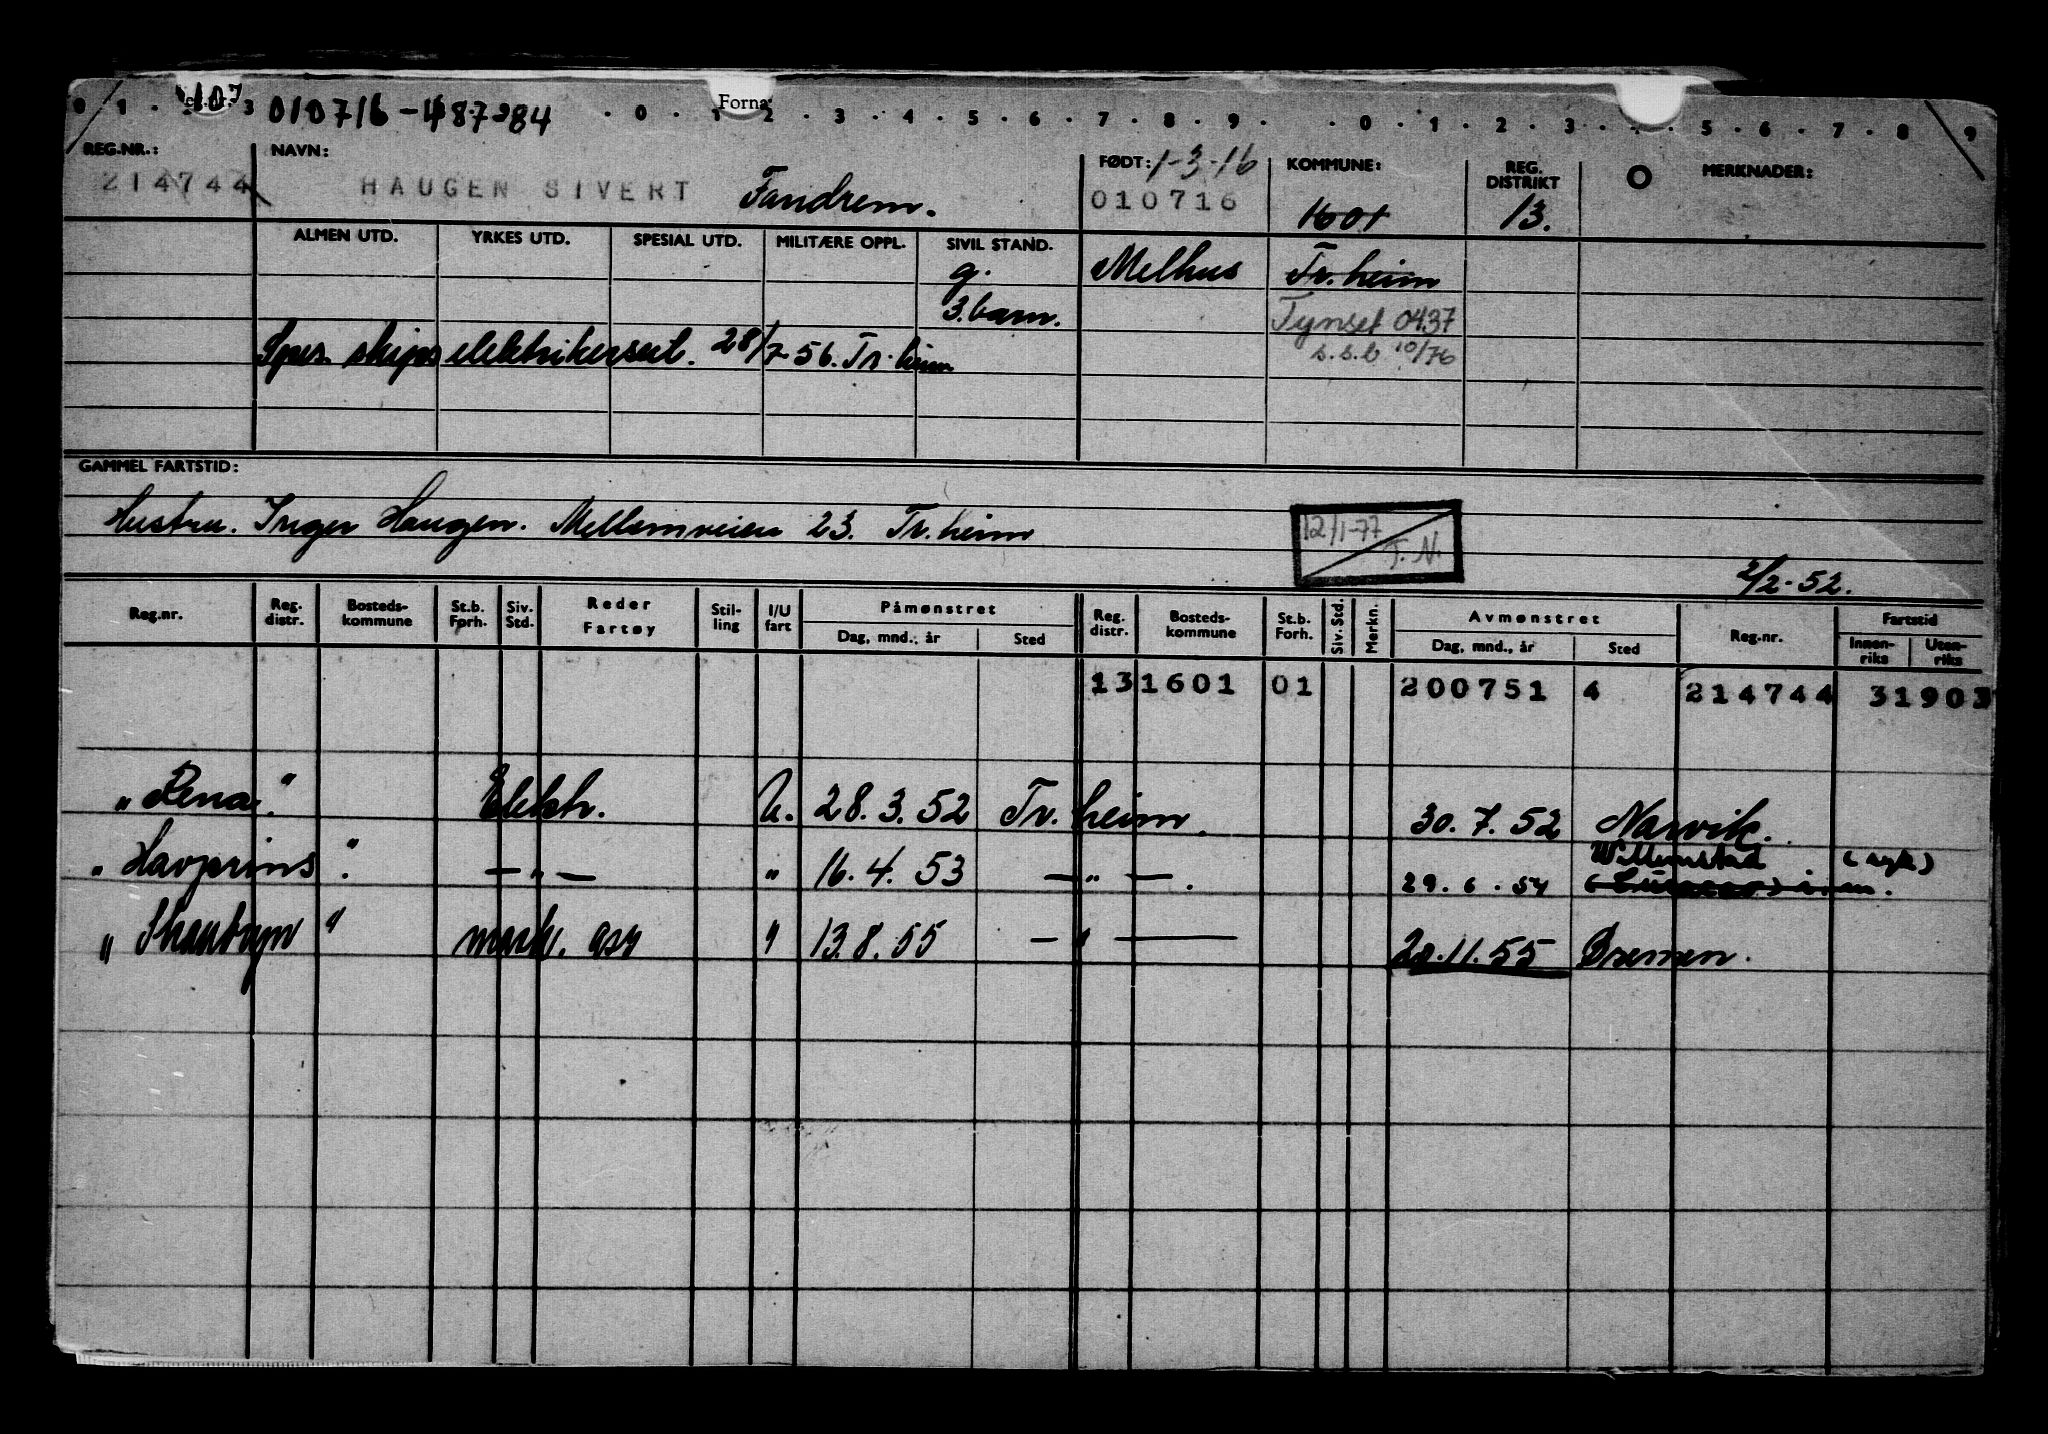 107 010716-48784 Forna
0 1 3 0 1 2 3 4 5 6 7 8 9 0 1 2 3 5 6 7 8 9
REG.NR.: NAVN: FØDT: 1-3-16 KOMMUNE: REG. DISTRIKT MERKNADER:
214744 HAUGEN SIVERT Fandrem. 010716 1601 13.
ALMEN UTD. YRKES UTD. SPESIAL UTD. MILITÆRE OPPL. SIVIL STAND.
g. Melhus Tr.heim
3.barn. Tynset 0437
Spes. skips elektrikersert. 28/7 56. Tr.heim s.s.b 10/76
GAMMEL FARTSTID:
Hustru. Inger Haugen. Mellomveien 23. Tr.heim 12/1-77 T.N.
2/2-52.
Reg.nr. Reg. distr. Bosteds-kommune St.b. Forh. Siv. Std. Reder Fartøy Stil-ling I/U fart Påmønstret Dag, mnd., år Sted Reg. distr. Bosteds-kommune St.b. Forh. Siv. Std. Merkn. Avmønstret Dag, mnd., år Sted Reg.nr. Fartstid Innen-riks Uten-riks
13 1601 01 200751 4 214744 31903
"Rena." Elektr. U. 28.3.52 Tr.heim. 30.7.52 Narvik.
"Havprins". — " — " 16.4.53 — " —. 29.6.54 Willemstad (syk)
" " 13.8.55 — " — 20.11.55 Bremen.